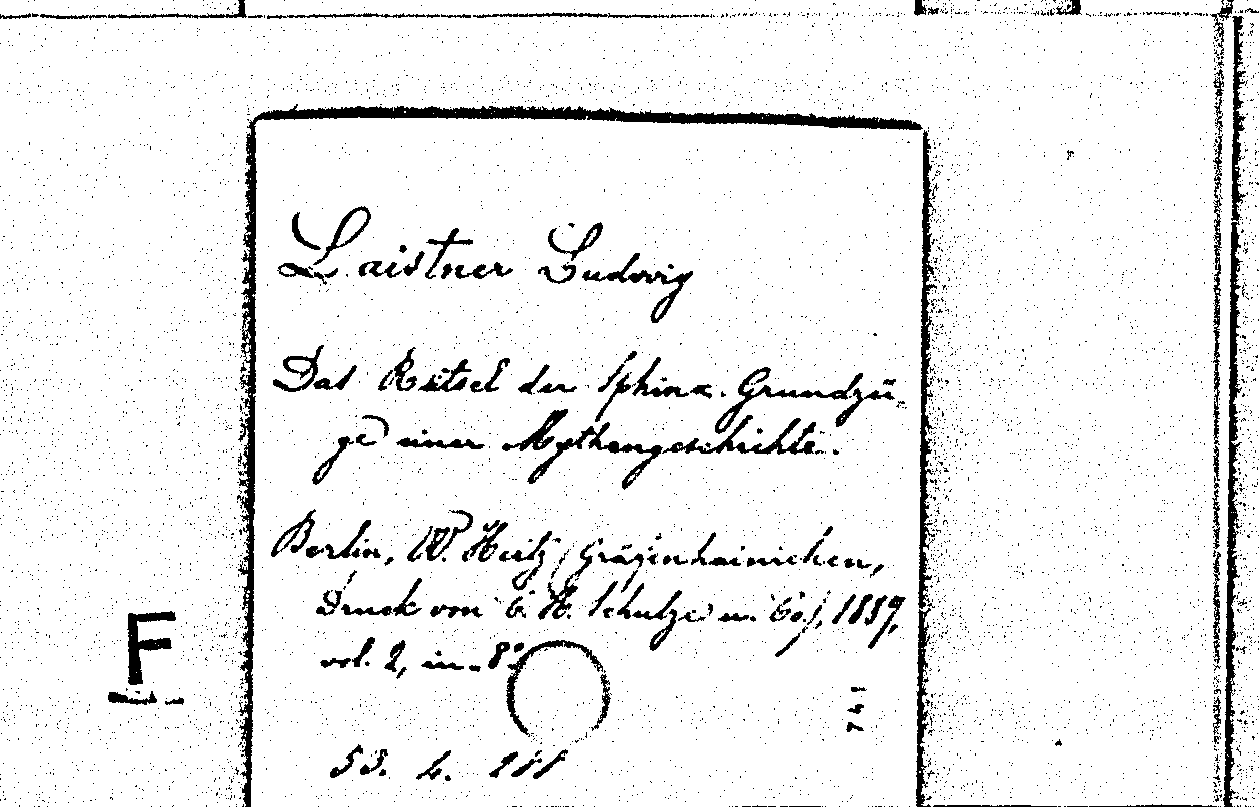 Laistner Ludwig
Das Rätsel der Sphinx. Grundzü-
ge einer Mythengeschichte.
Berlin, W. Hertz (Gräfenhainichen,
Druck von C. H. Schulze u. Co.), 1889,
vol. 2, in-8°
F
741
53. 4.